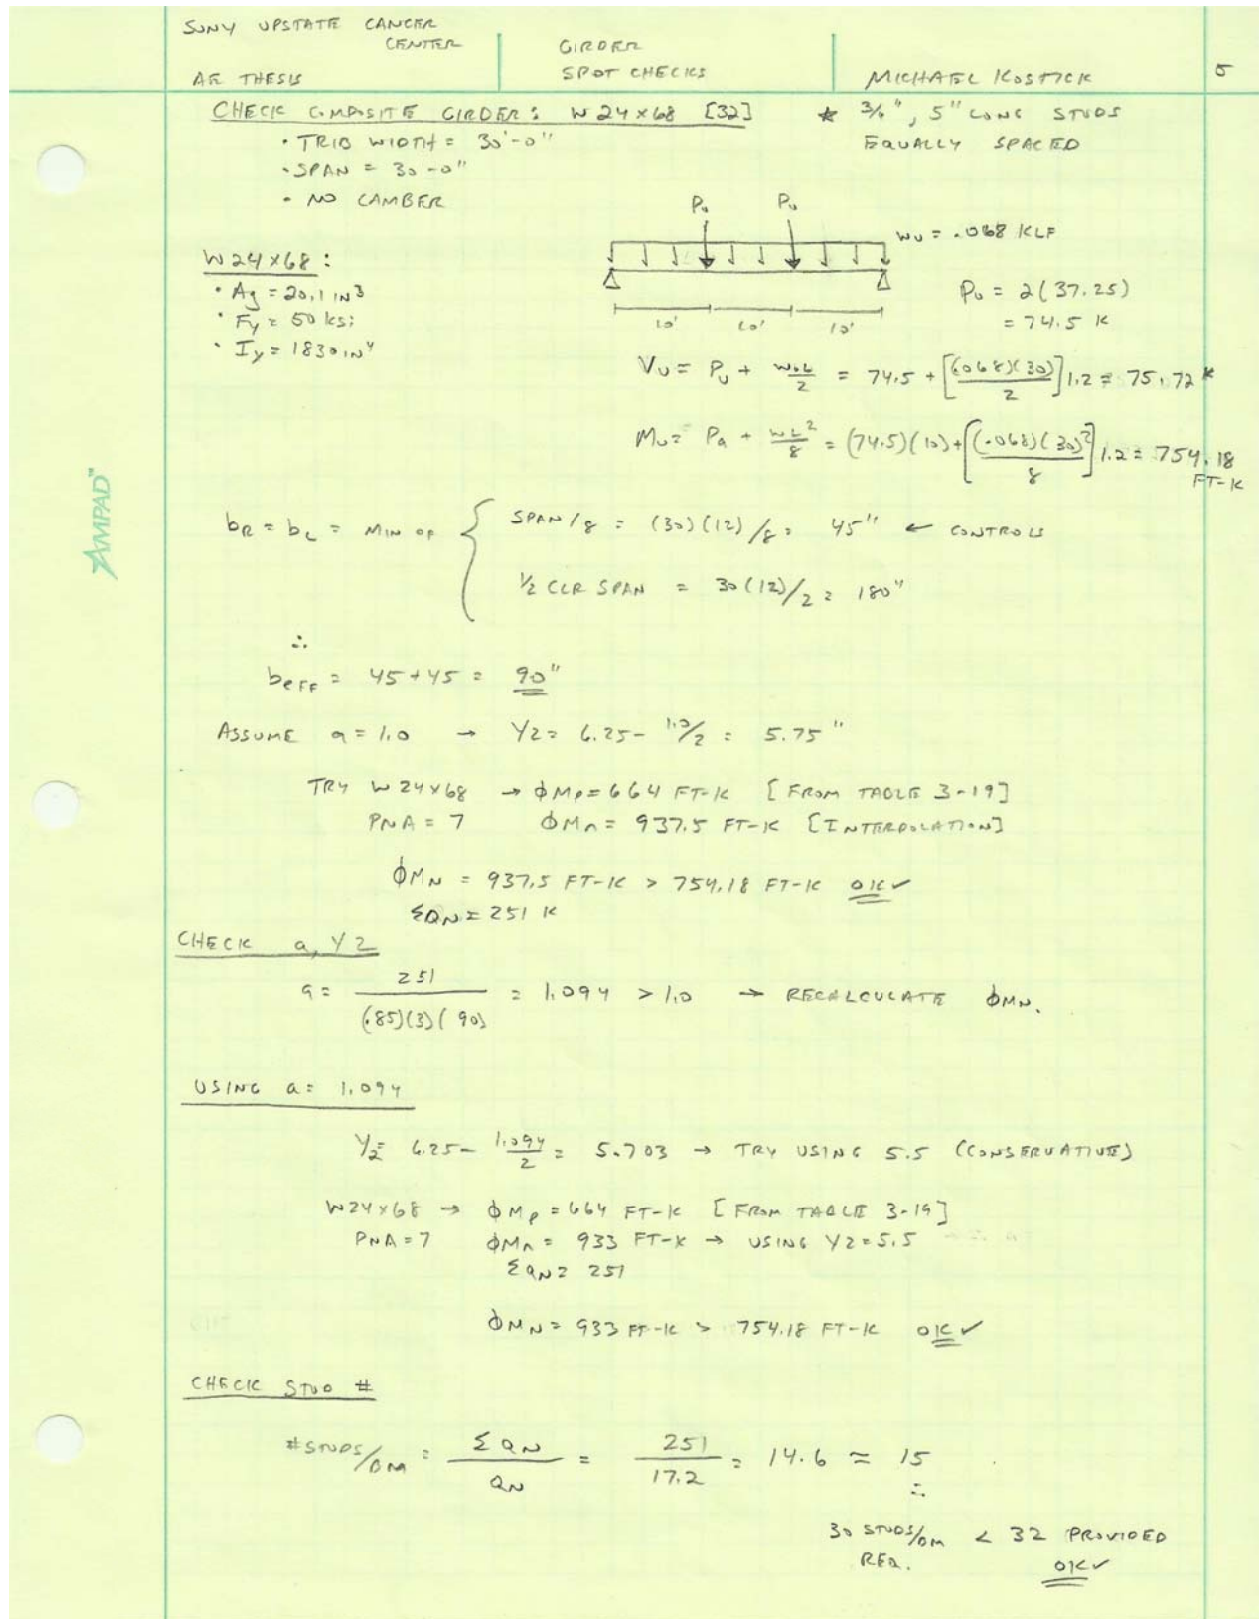 SUNY UPSTATE CANCER
CENTER
AE THESIS
GIRDER
SPOT CHECKS
MICHAEL KOSTICK
5
CHECK COMPOSITE GIRDER: W24x68 [32]
* 3/4", 5" LONG STUDS
EQUALLY SPACED
• TRIB WIDTH = 30'-0"
• SPAN = 30-0"
• NO CAMBER
Pu Pu
wu = .068 KLF
W24x68:
• Ag = 20.1 IN3
• Fy = 50 ksi
• Iy = 1830 IN4
10' 10' 10'
Pu = 2(37.25)
= 74.5 K
Vu = Pu + wuL/2 = 74.5 + [(.068)(30)/2]1.2 = 75.72 K
Mu = Pa + wL²/8 = (74.5)(10) + [(.068)(30)²/8]1.2 = 754.18
FT-K
AMPAD™
bR = bL = MIN OF { SPAN/8 = (30)(12)/8 = 45" ← CONTROLS
1/2 CLR SPAN = 30(12)/2 = 180"
∴
bEFF = 45+45 = 90"
ASSUME a = 1.0 → Y2 = 6.25 - 1.0/2 = 5.75"
TRY W24x68 → ϕMp = 664 FT-K [FROM TABLE 3-19]
PNA = 7 ϕMn = 937.5 FT-K [INTERPOLATION]
ϕMN = 937.5 FT-K > 754.18 FT-K OK ✓
ΣQN = 251 K
CHECK a, Y2
a = 251/(.85)(3)(90) = 1.094 > 1.0 → RECALCULATE ϕMN.
USING a = 1.094
Y2 = 6.25 - 1.094/2 = 5.703 → TRY USING 5.5 (CONSERVATIVE)
W24x68 → ϕMp = 664 FT-K [FROM TABLE 3-19]
PNA = 7 ϕMn = 933 FT-K → USING Y2 = 5.5
ΣQN = 251
ϕMN = 933 FT-K > 754.18 FT-K OK ✓
CHECK STUD #
# STUDS/BM = ΣQN/QN = 251/17.2 = 14.6 ≈ 15
∴
30 STUDS/BM < 32 PROVIDED
REQ. OK ✓